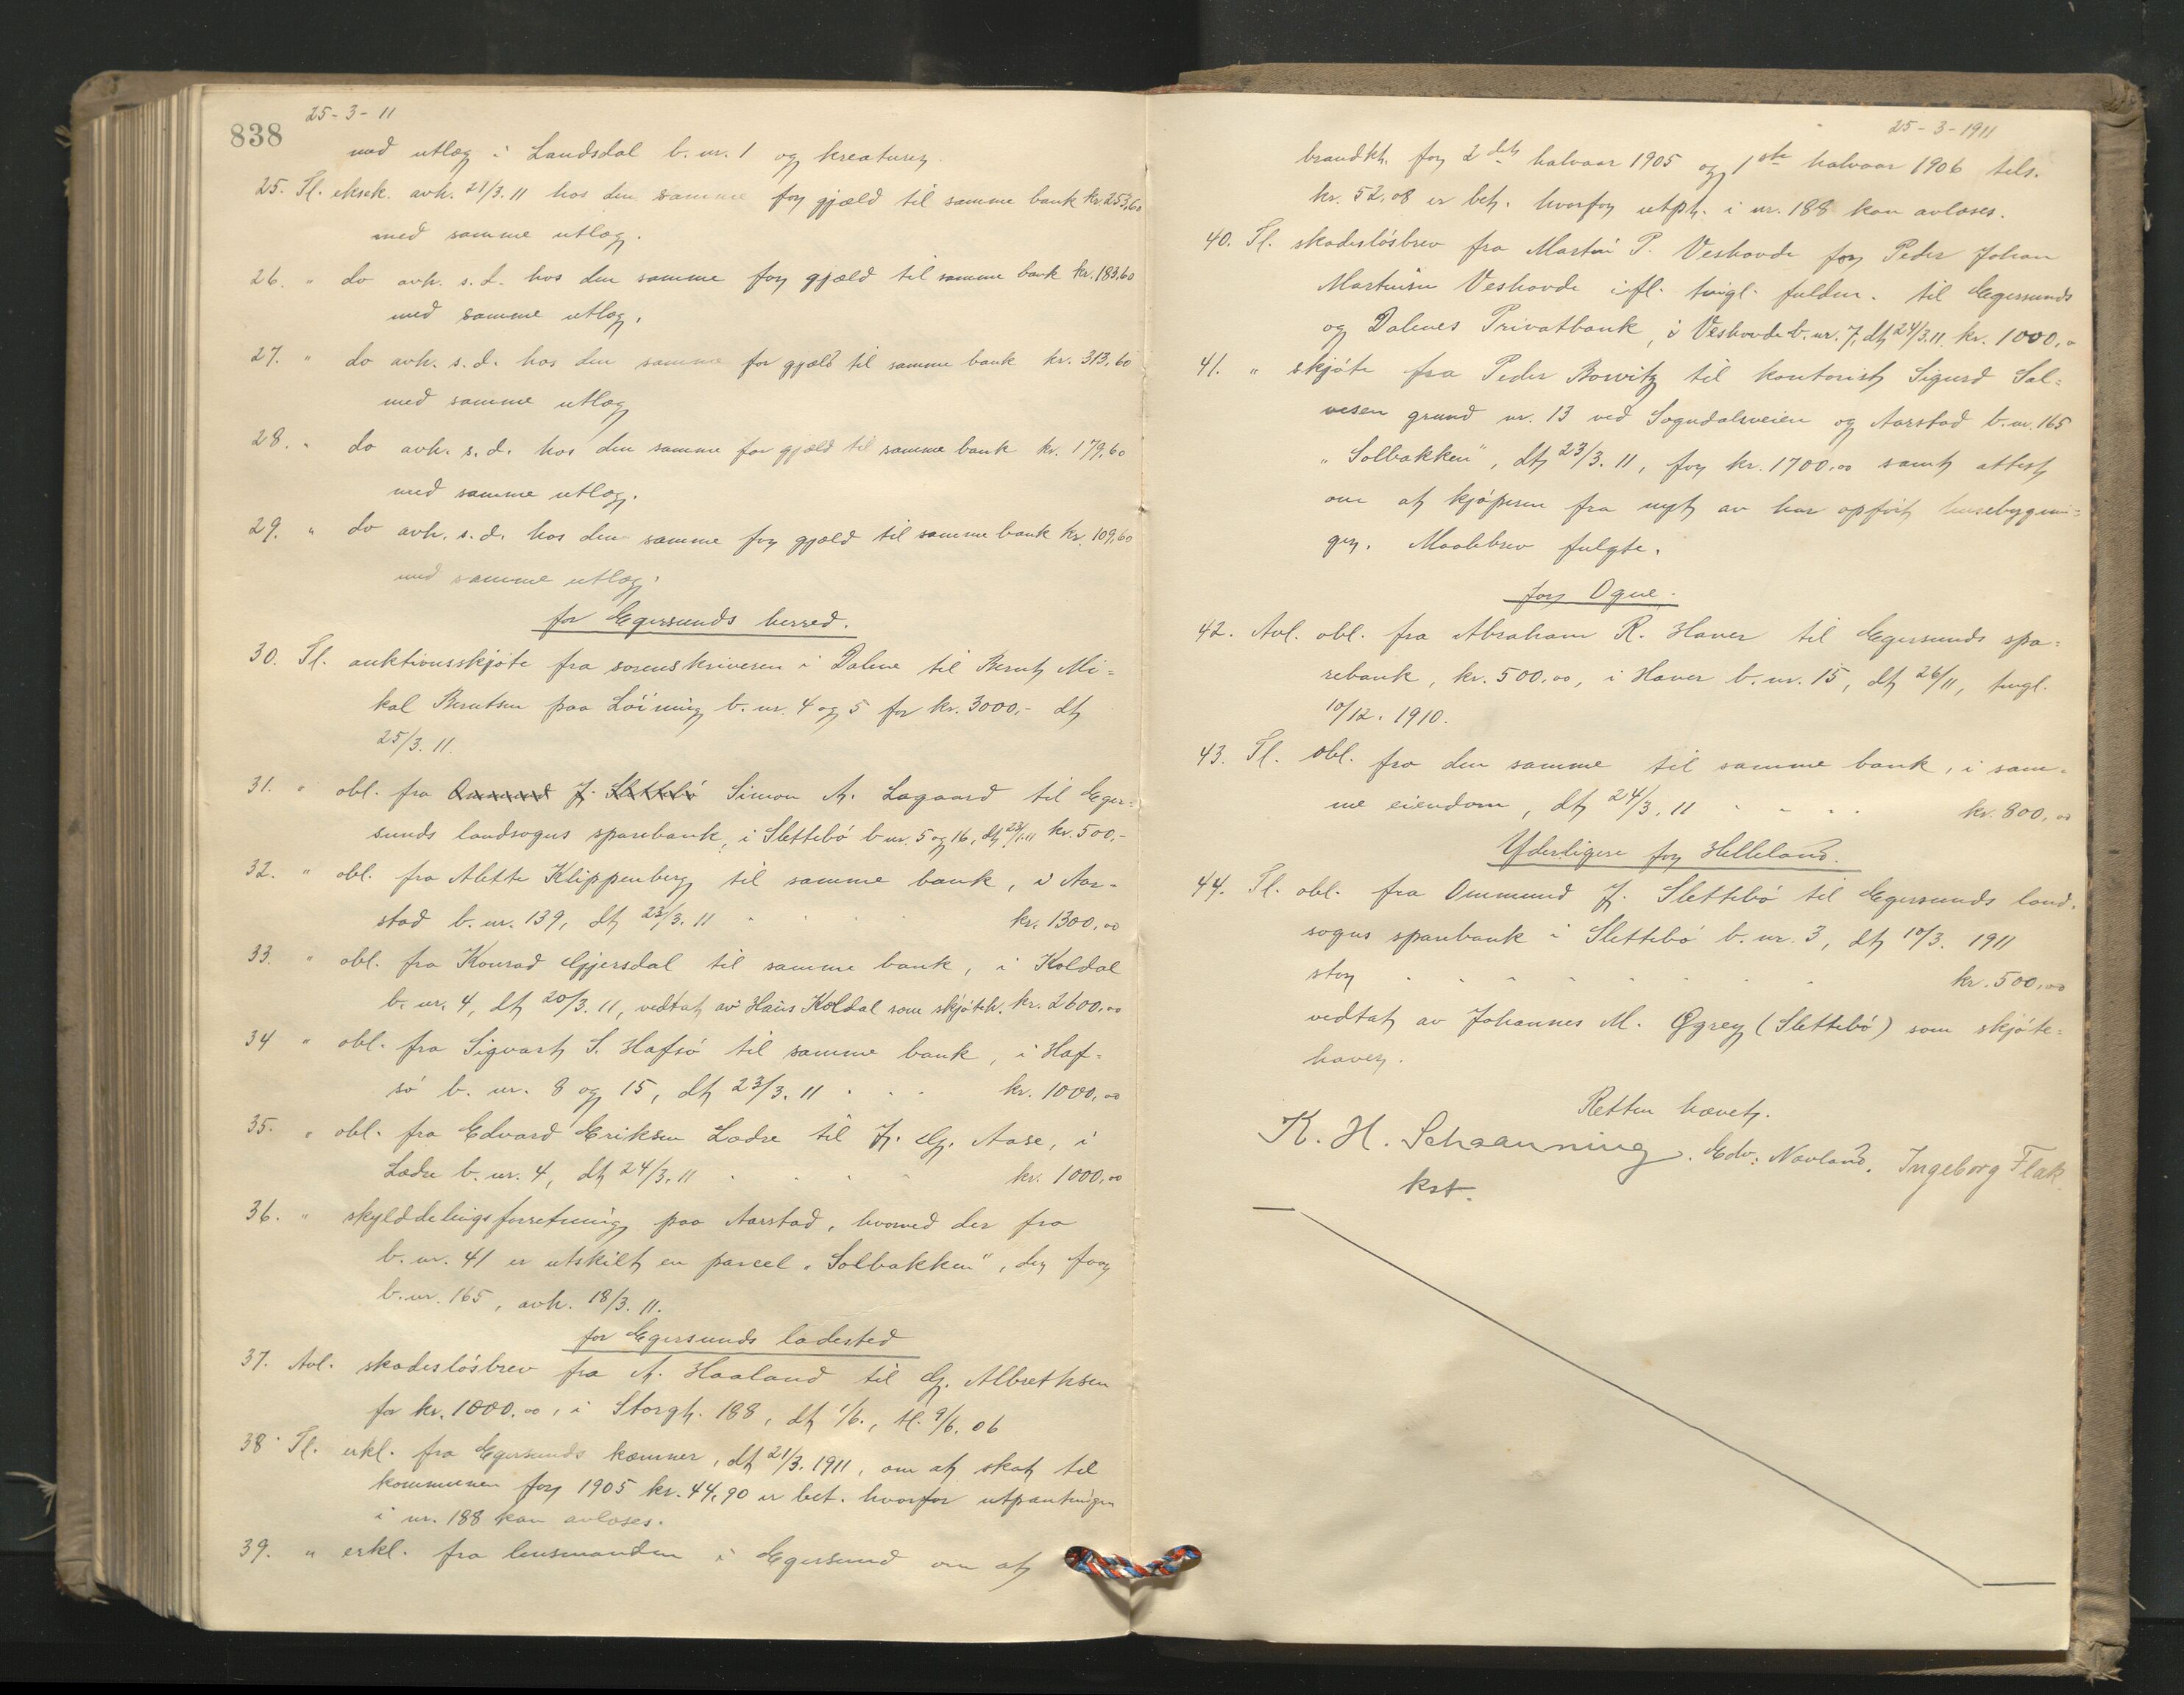 838
25-3-11
med utlæg i Landsdal b. nr. 1 og kreaturer.
25. Tl. eksek. avh. 21/3. 11 hos den samme for gjæld til samme bank kr. 253,60
med samme utlæg.
26. " do avh. s. d. hos den samme for gjæld til samme bank kr. 183,60
med samme utlæg.
27. " do avh. s. d. hos den samme for gjæld til samme bank kr. 313,60
med samme utlæg
28. " do avh. s. d. hos den samme for gjæld til samme bank kr. 179,60
med samme utlæg.
29. " do avh. s. d. hos den samme for gjæld til samme bank kr. 109,60
med samme utlæg.
for Egersunds herred.
30. Tl. auktionsskjøte fra sorenskriveren i Dalene til Bernt Mi-
kal Berntsen paa Løining b. nr. 4 og 5 for kr. 3000,- dt
25/3. 11.
31. " obl. fra Ommund J. Slettebø Simon A. Lagaard til Eger-
sunds landsogns sparebank, i Slettebø b nr. 5 og 16, dt 23/1. 11 kr. 500,-
32. " obl. fra Alette Klippenberg til samme bank, i Aar-
stad b. nr. 139, dt 23/3. 11 kr. 1300,00
33. " obl. fra Konrad Gjersdal til samme bank, i Koldal
b. nr. 4, dt 20/3. 11, vedtat av Hans Koldal som skjøteh. kr. 2600,00
34 " obl. fra Sigvart S. Hafsø til samme bank, i Haf-
sø b. nr. 8 og 15, dt 23/3. 11 . . . kr. 1000,00
35. " obl. fra Edvard Eriksen Lædre til J. G. Aase, i
Lædre b. nr. 4, dt 24/3. 11 . . . . kr. 1000,00
36. " skylddelingsforretning paa Aarstad, hvorved der fra
b. nr. 41 er utskilt en parcel "Solbakken", der faar
b. nr. 165, avh. 18/3. 11.
for Egersunds ladested
37. Avl. skadesløsbrev fra A. Haaland til G. Albrethsen
for kr. 1000.00, i Storgt. 188, dt 1/6., tl. 9/6. 06
38 Tl. erkl. fra Egersunds kæmner, dt 21/3. 1911, om at skat til
kommunen for 1905 kr. 44,90 er bet. hvorfor utpantningen
i nr. 188 kan avlæses.
39. " erkl. fra lensmanden i Egersund om at
25-3-1911
brandkt. for 2det halvaar 1905 og 1ste halvaar 1906 tils.
kr. 52,08 er bet. hvorfor utpt. i nr. 188 kan avlæses.
40. Tl. skadesløsbrev fra Martin P. Veshovde for Peder Johan
Martinsen Veshovde ifl. tingl. fuldm. til Egersunds
og Dalenes Privatbank, i Veshovde b. nr. 7, dt 24/3. 11. kr. 1000,0
41. " skjøte fra Peder Bowitz til kontorist Sigurd Sal-
vesen grund nr. 13 ved Sogndalsveien og Aarstad b. nr. 165
"Solbakken", dt 23/3. 11, for kr. 1700.00 samt attest
om at kjøperen fra nyt av har opført husebygnin-
ger. Maalebrev fulgte.
for Ogne.
42. Avl. obl. fra Abraham R. Haver til Egersunds spa-
rebank, kr. 500.00, i Haver b. nr. 15, dt 26/11, tingl.
10/12. 1910.
43. Tl. obl. fra den samme til samme bank, i sam-
me eiendom, dt 24/3. 11 . . . . kr. 800,00
Yderligere for Helleland.
44. Tl. obl. fra Ommund J. Slettebø til Egersunds land-
sogns sparebank i Slettebø b. nr. 3, dt 10/3. 1911
stor . . . . . . . . kr. 500,00
vedtat av Johannes M. Øgrey (Slettebø) som skjøte-
haver.
Retten hævet.
K. H. Schaanning. Edv: Nævland. Ingeborg Flak.
kst.